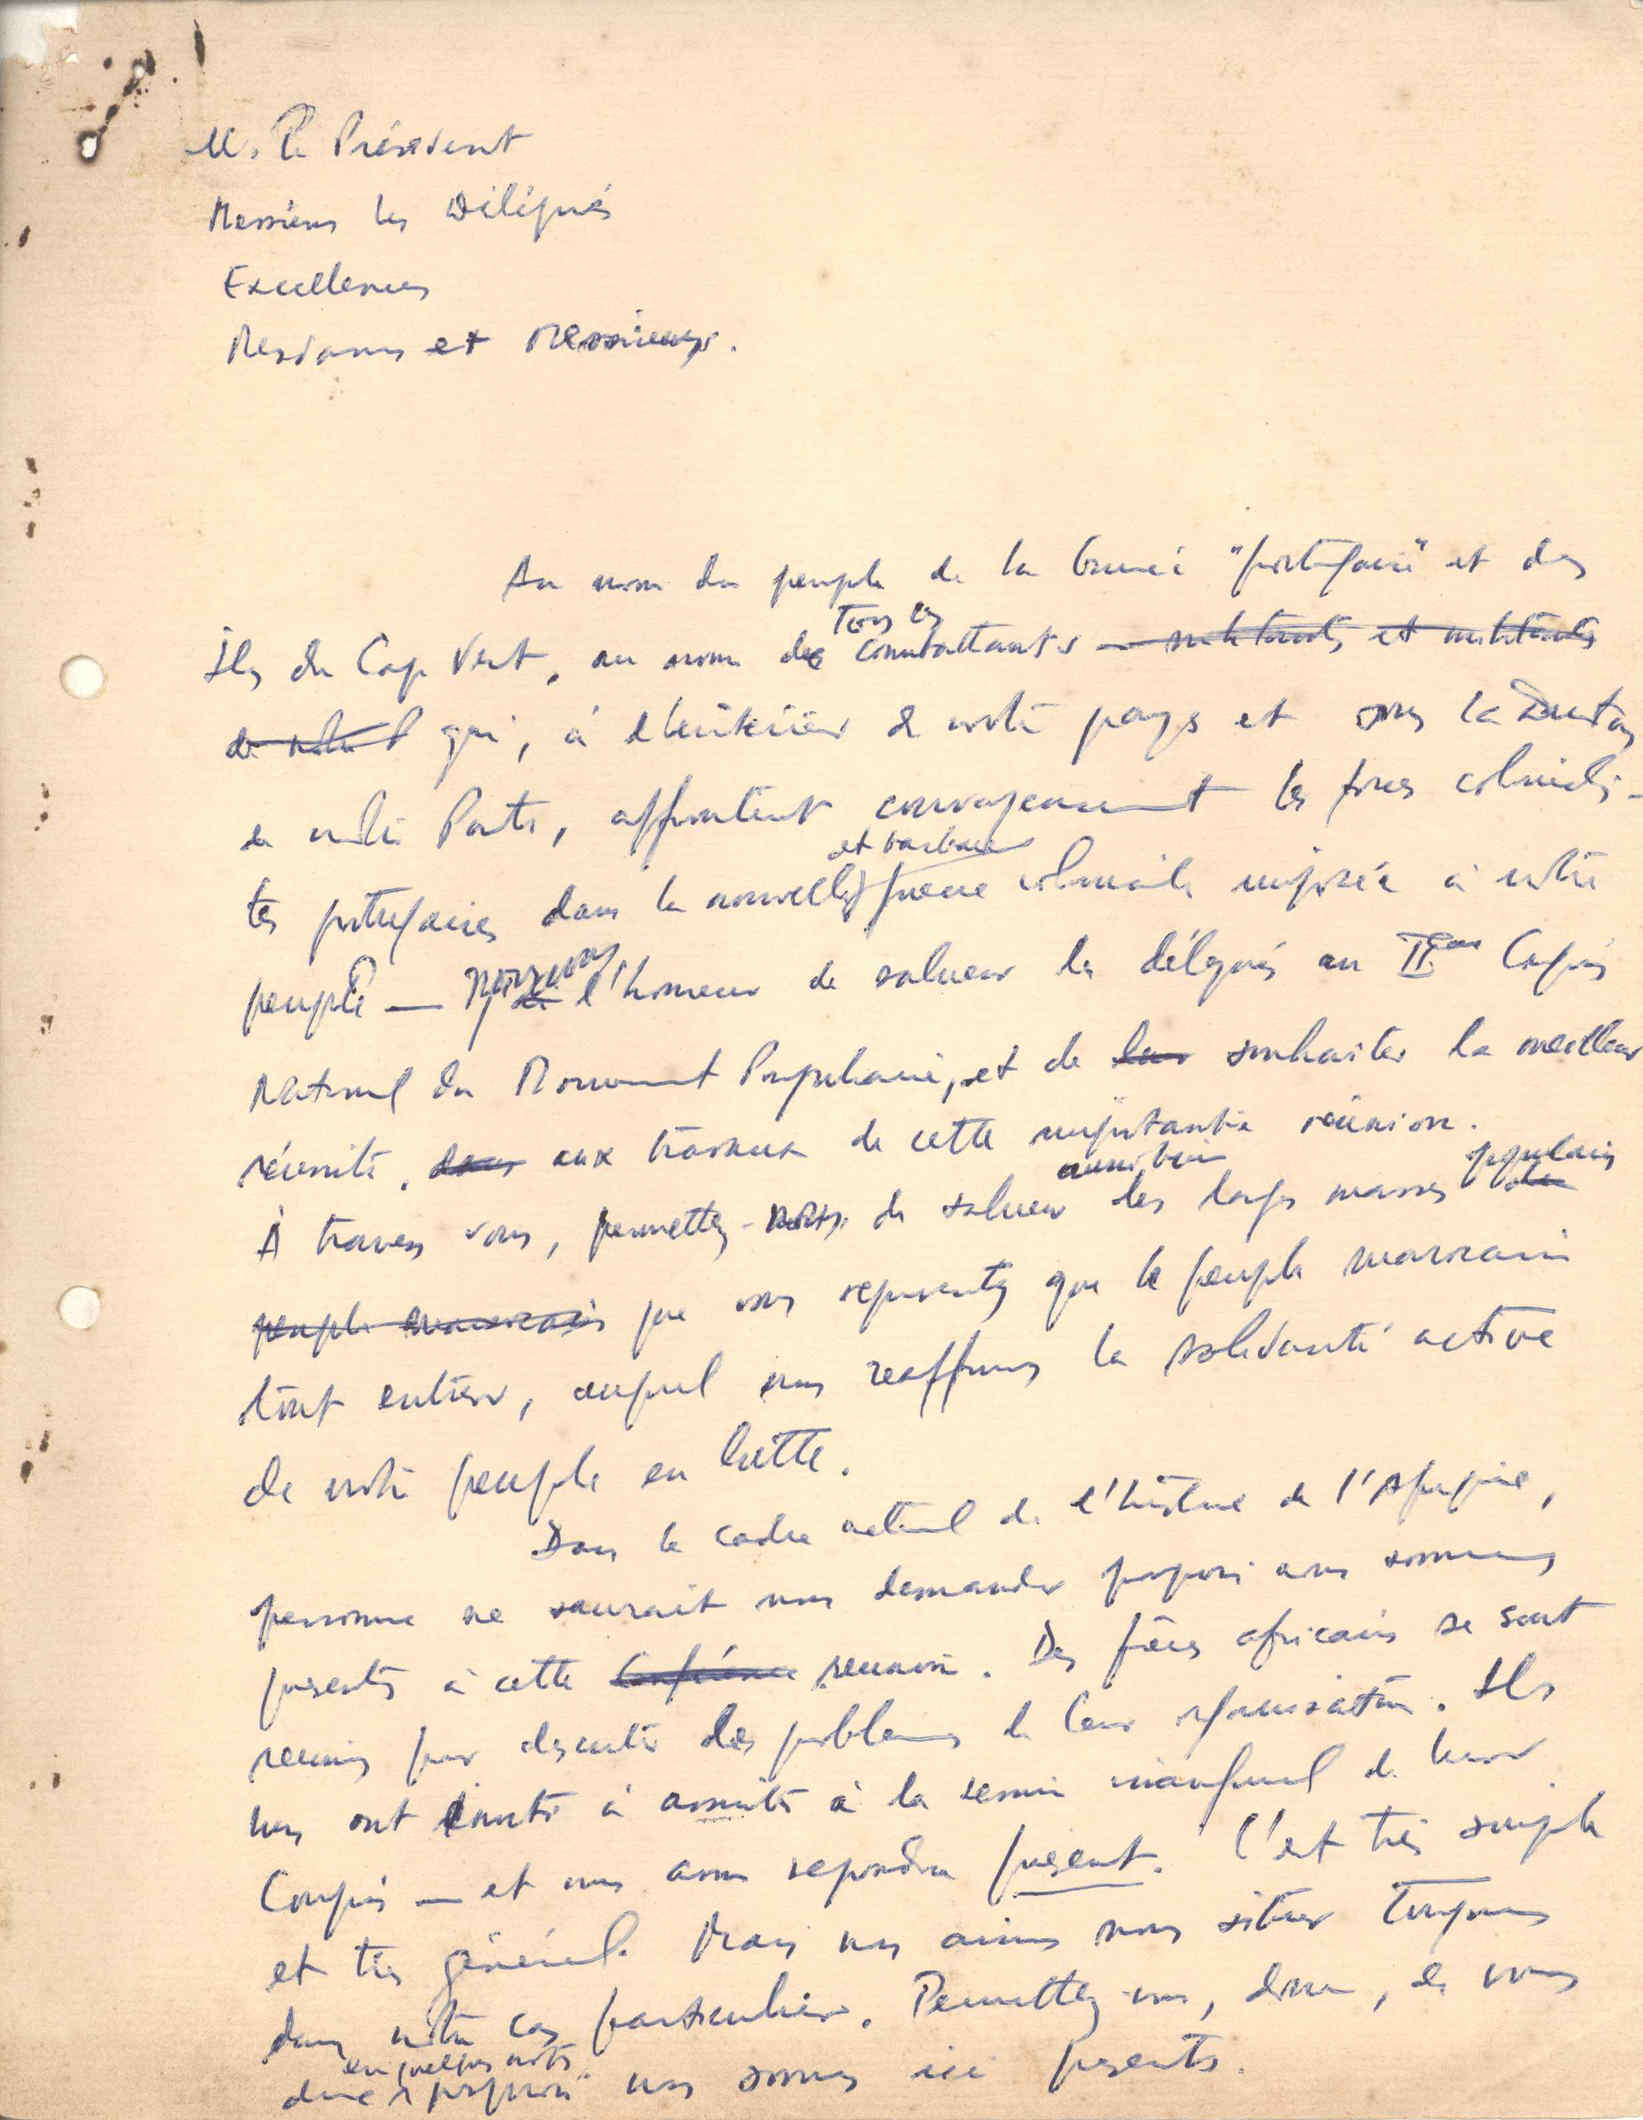 M. le Président
Messieurs les Délégués
Excellences
Mesdames et Messieurs.
Au nom du peuple de la Guinée "portugaise" et des
tous les
Iles du Cap Vert, au nom de combattants — militants et militants
de notre P qui, à l'intérieur de notre pays et sous la direction
de notre Parti, affrontent courageusement les forces colonialis-
et barbare
tes portugaises dans la nouvelle guerre coloniale imposée à notre
peuple — nous avons l'honneur de saluer les délégués au IIème Congrès
National du Mouvement Populaire, et de leur souhaiter la meilleur
réussite, dans aux travaux de cette importante réunion.
aussi bien populaires
À travers vous, permettez-nous de saluer les larges masses de
peuple marocain que vous representez que le peuple marocain
tout entier, auquel nous reaffirmons la solidarité active
de notre peuple en lutte.
Dans le cadre actuel de l'histoire de l'Afrique,
personne ne saurait nous demander pourquoi nous sommes
presents à cette Conférence reunion. Des frères africains se sont
reunis pour discuter des problèmes de leur organisation. Ils
nous ont invité à assister à la session inaugural de leur
Congrès — et nous avons repondu présent. C'est très simple
et très général. Mais nous aimons nous situer toujours
dans notre cas particulier. Permettez-nous, donc, de vous
en quelques mots
dire pourquoi nous sommes ici presents.